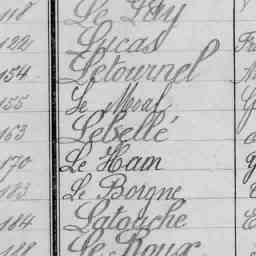 118 Le Puy
122 Lucas
154 Letournel
155 Le Moal
163 Lebellé
170 Le Ham
183 Le Borgne
184 Latouche
188 Le Roux